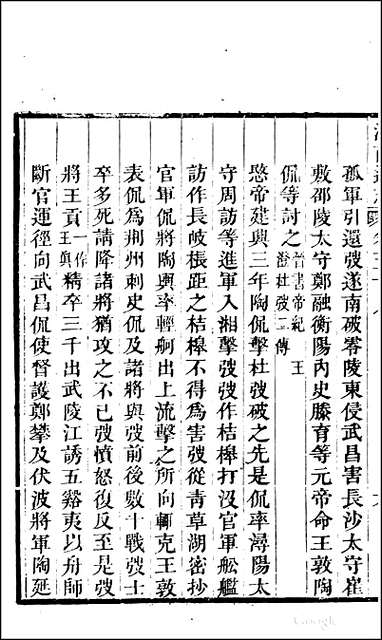 孤軍引還弢遂南破零陵東侵武昌害長沙太守崔
敷邵陵太守鄭融衡陽內史滕育等元帝命王敦陶
侃等討之晉書帝紀王澄杜弢二傳
愍帝建興三年陶侃擊杜弢破之先是侃率潯陽太
守周訪等進軍入湘擊弢弢作桔橰打沒官軍舩艦
訪作長岐棖距之桔橰不得爲害弢從靑草湖密抄
官軍侃將陶輿率輕舸出上流擊之所向輒克王敦
表侃爲荆州刺史侃及諸將與弢前後數十戰弢士
卒多死請降諸將猶攻之不已弢憤怒復反至是弢
將王貢一作王輿精卒三千出武陵江誘五谿夷以舟師
斷官運徑向武昌侃使督護鄭攀及伏波將軍陶延